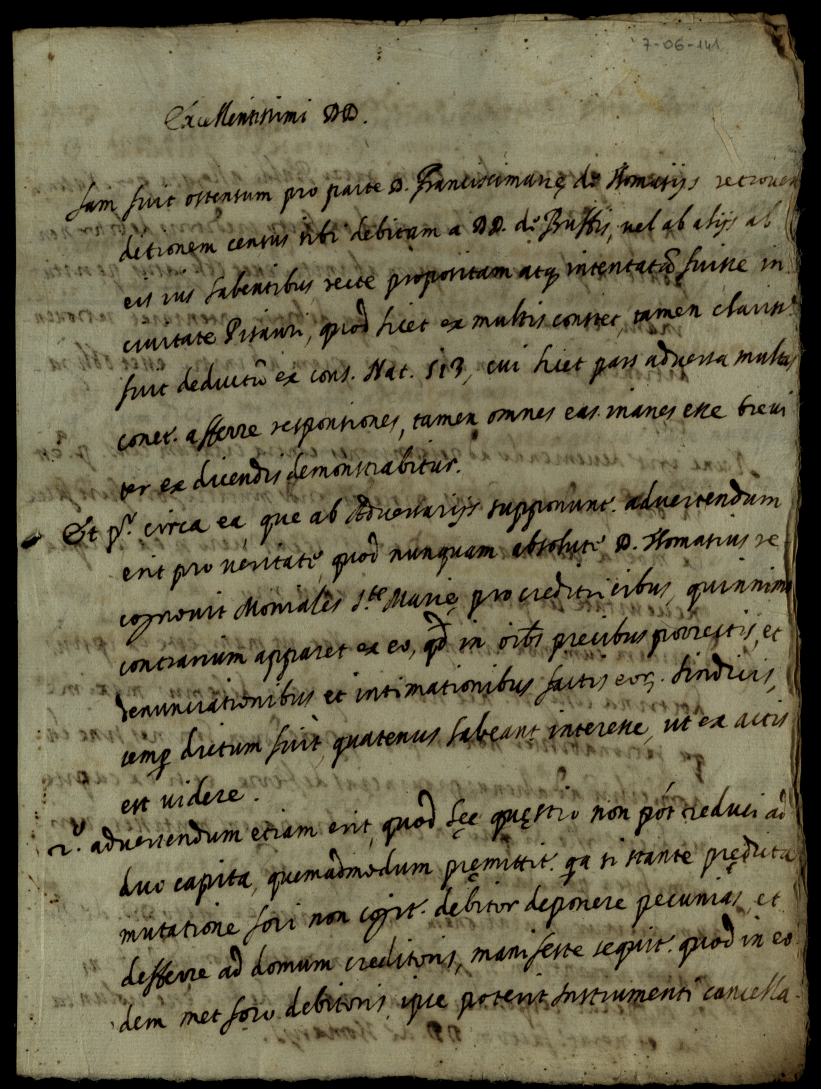 7-06-141
Excellentissimi DD.
Iam fuit ostensum pro parte D. Franciscimarię de Thomasijs retroven
ditionem census sibi debitam a DD. de Bussis, vel ab alijs ab
eis ius habentibus recte propositam atq intentatā fuisse in
civitate Pisauri, quod licet ex multis constet, tamen clariss.e
fuit deductū ex cons. Nat. 513, cui licet pars adversa multas
conet. afferre responsiones, tamen omnes eas inanes esse brevi
ter ex dicendis demonstrabitur.
Et p.o circa ea que ab Adversarijs supponunt. advertendum
erit pro veritate, quod nunquam absolute D. Thomasius re-
cognovit Moniales S.te Marię pro creditricibus, quinnimo
contrarium apparet ex eo, qd in oibs precibus porrectis, et
denunciationibus et intimationibus factis eor. Sindicis,
semp dictum fuit, quatenus habeant interesse, ut ex actis
est videre.
2.o advertendum etiam erit, quod hęc quęstio non pót reduci ad
duo capita, quemadmodum pręmittit. qa si stante prędicta
mutatione fori non cogit. debitor deponere pecunias, et
defferre ad domum creditoris, manifeste sequit. quod in eo
dem met foro debitoris, ipse poterit instrumenti cancella-